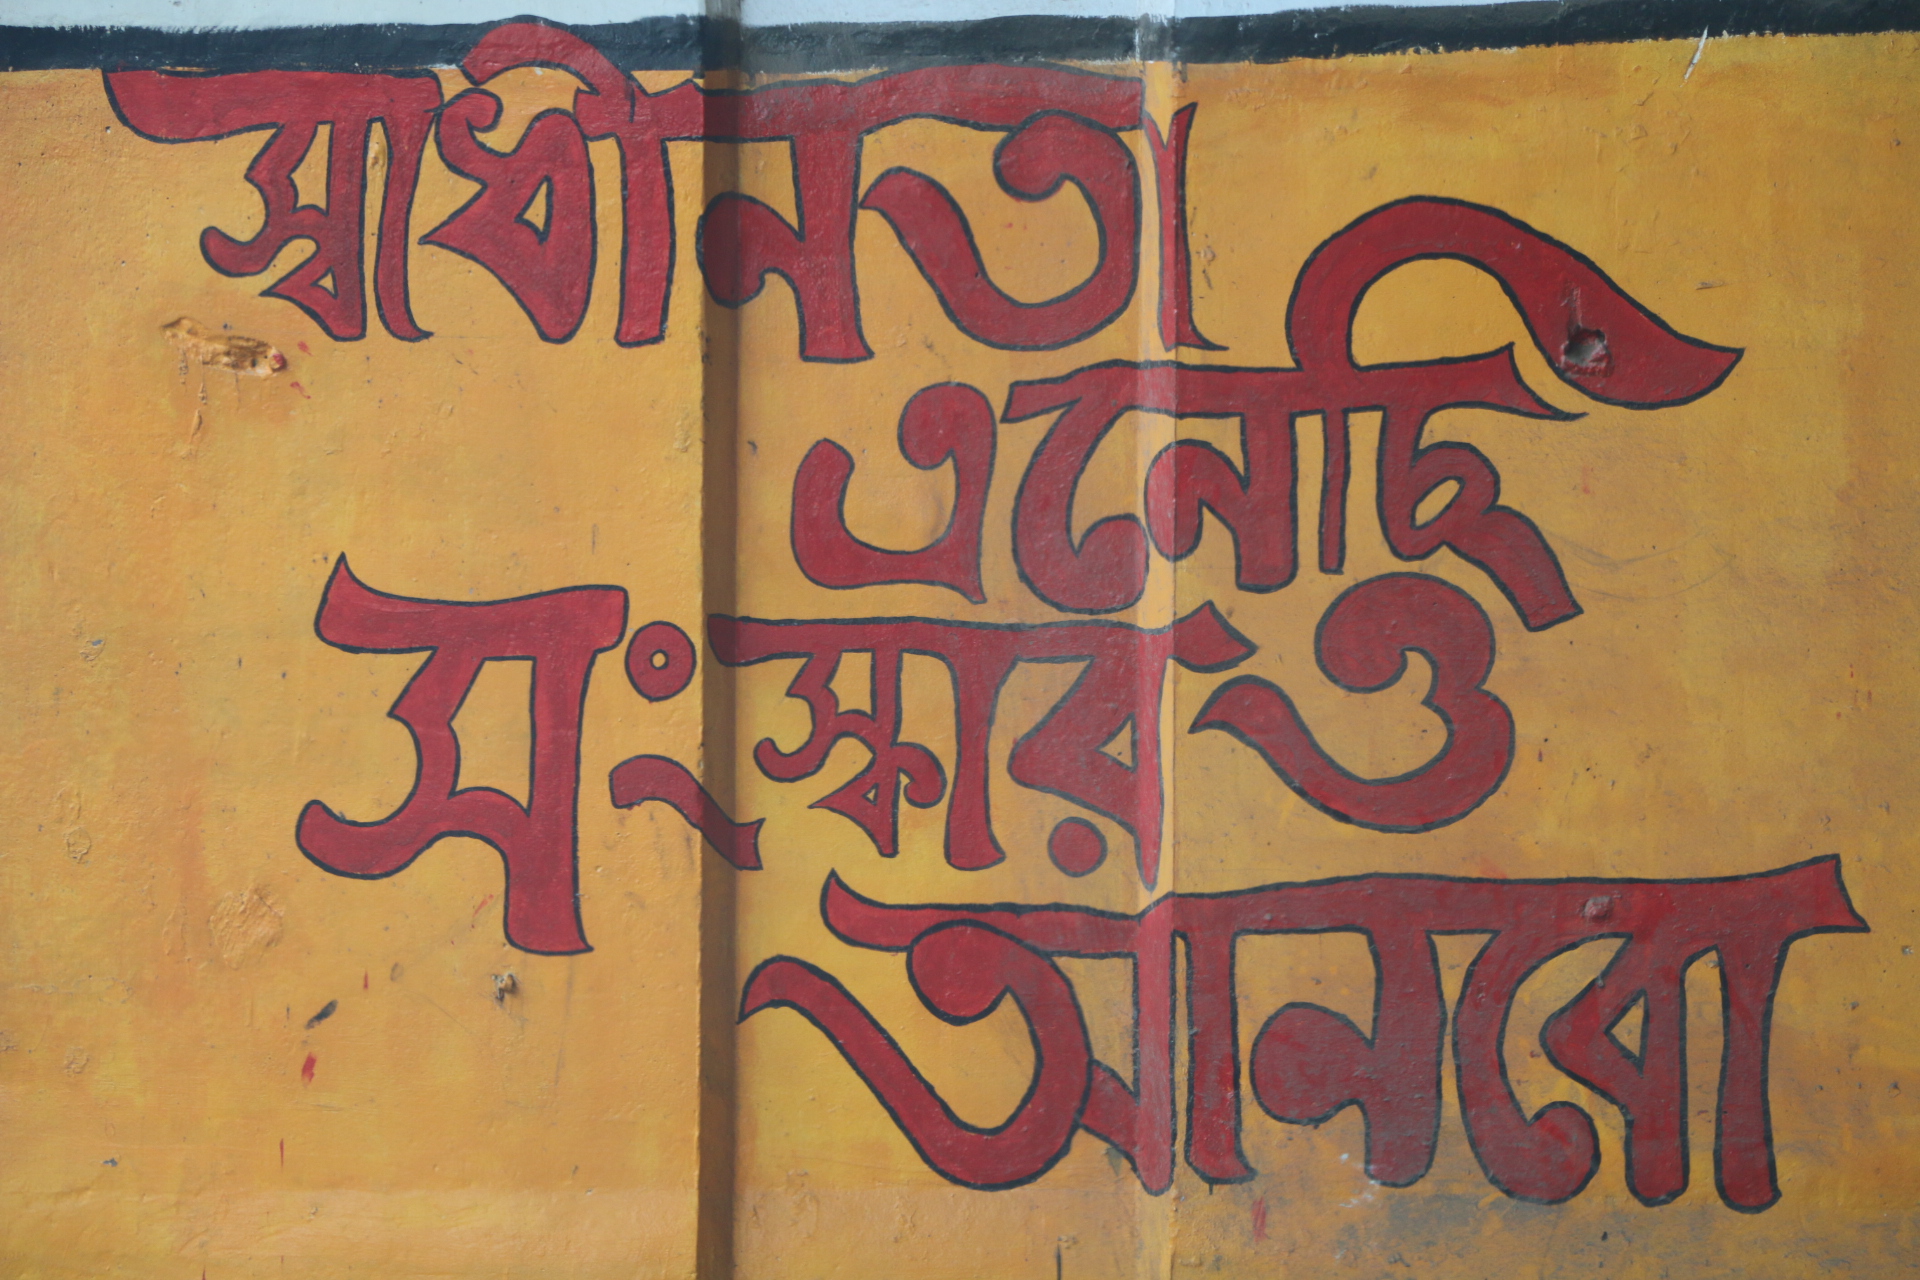 স্বাধীনতা
এনেছি
সংস্কারও
আনবো